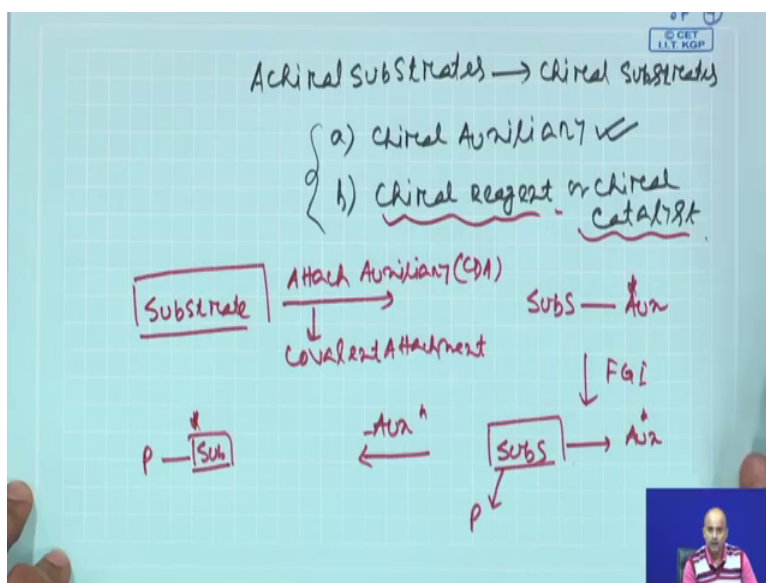 © CET
I.I.T. KGP
Achiral Substrates → Chiral Substrates
a) Chiral Auxiliary ✓
b) Chiral Reagent or Chiral
Catalyst.
Substrate
Attach Auxiliary (CDA)
Covalent Attachment
Subs — Aux*
FGI
Subs → Aux*
P
-Aux*
P — Sub*